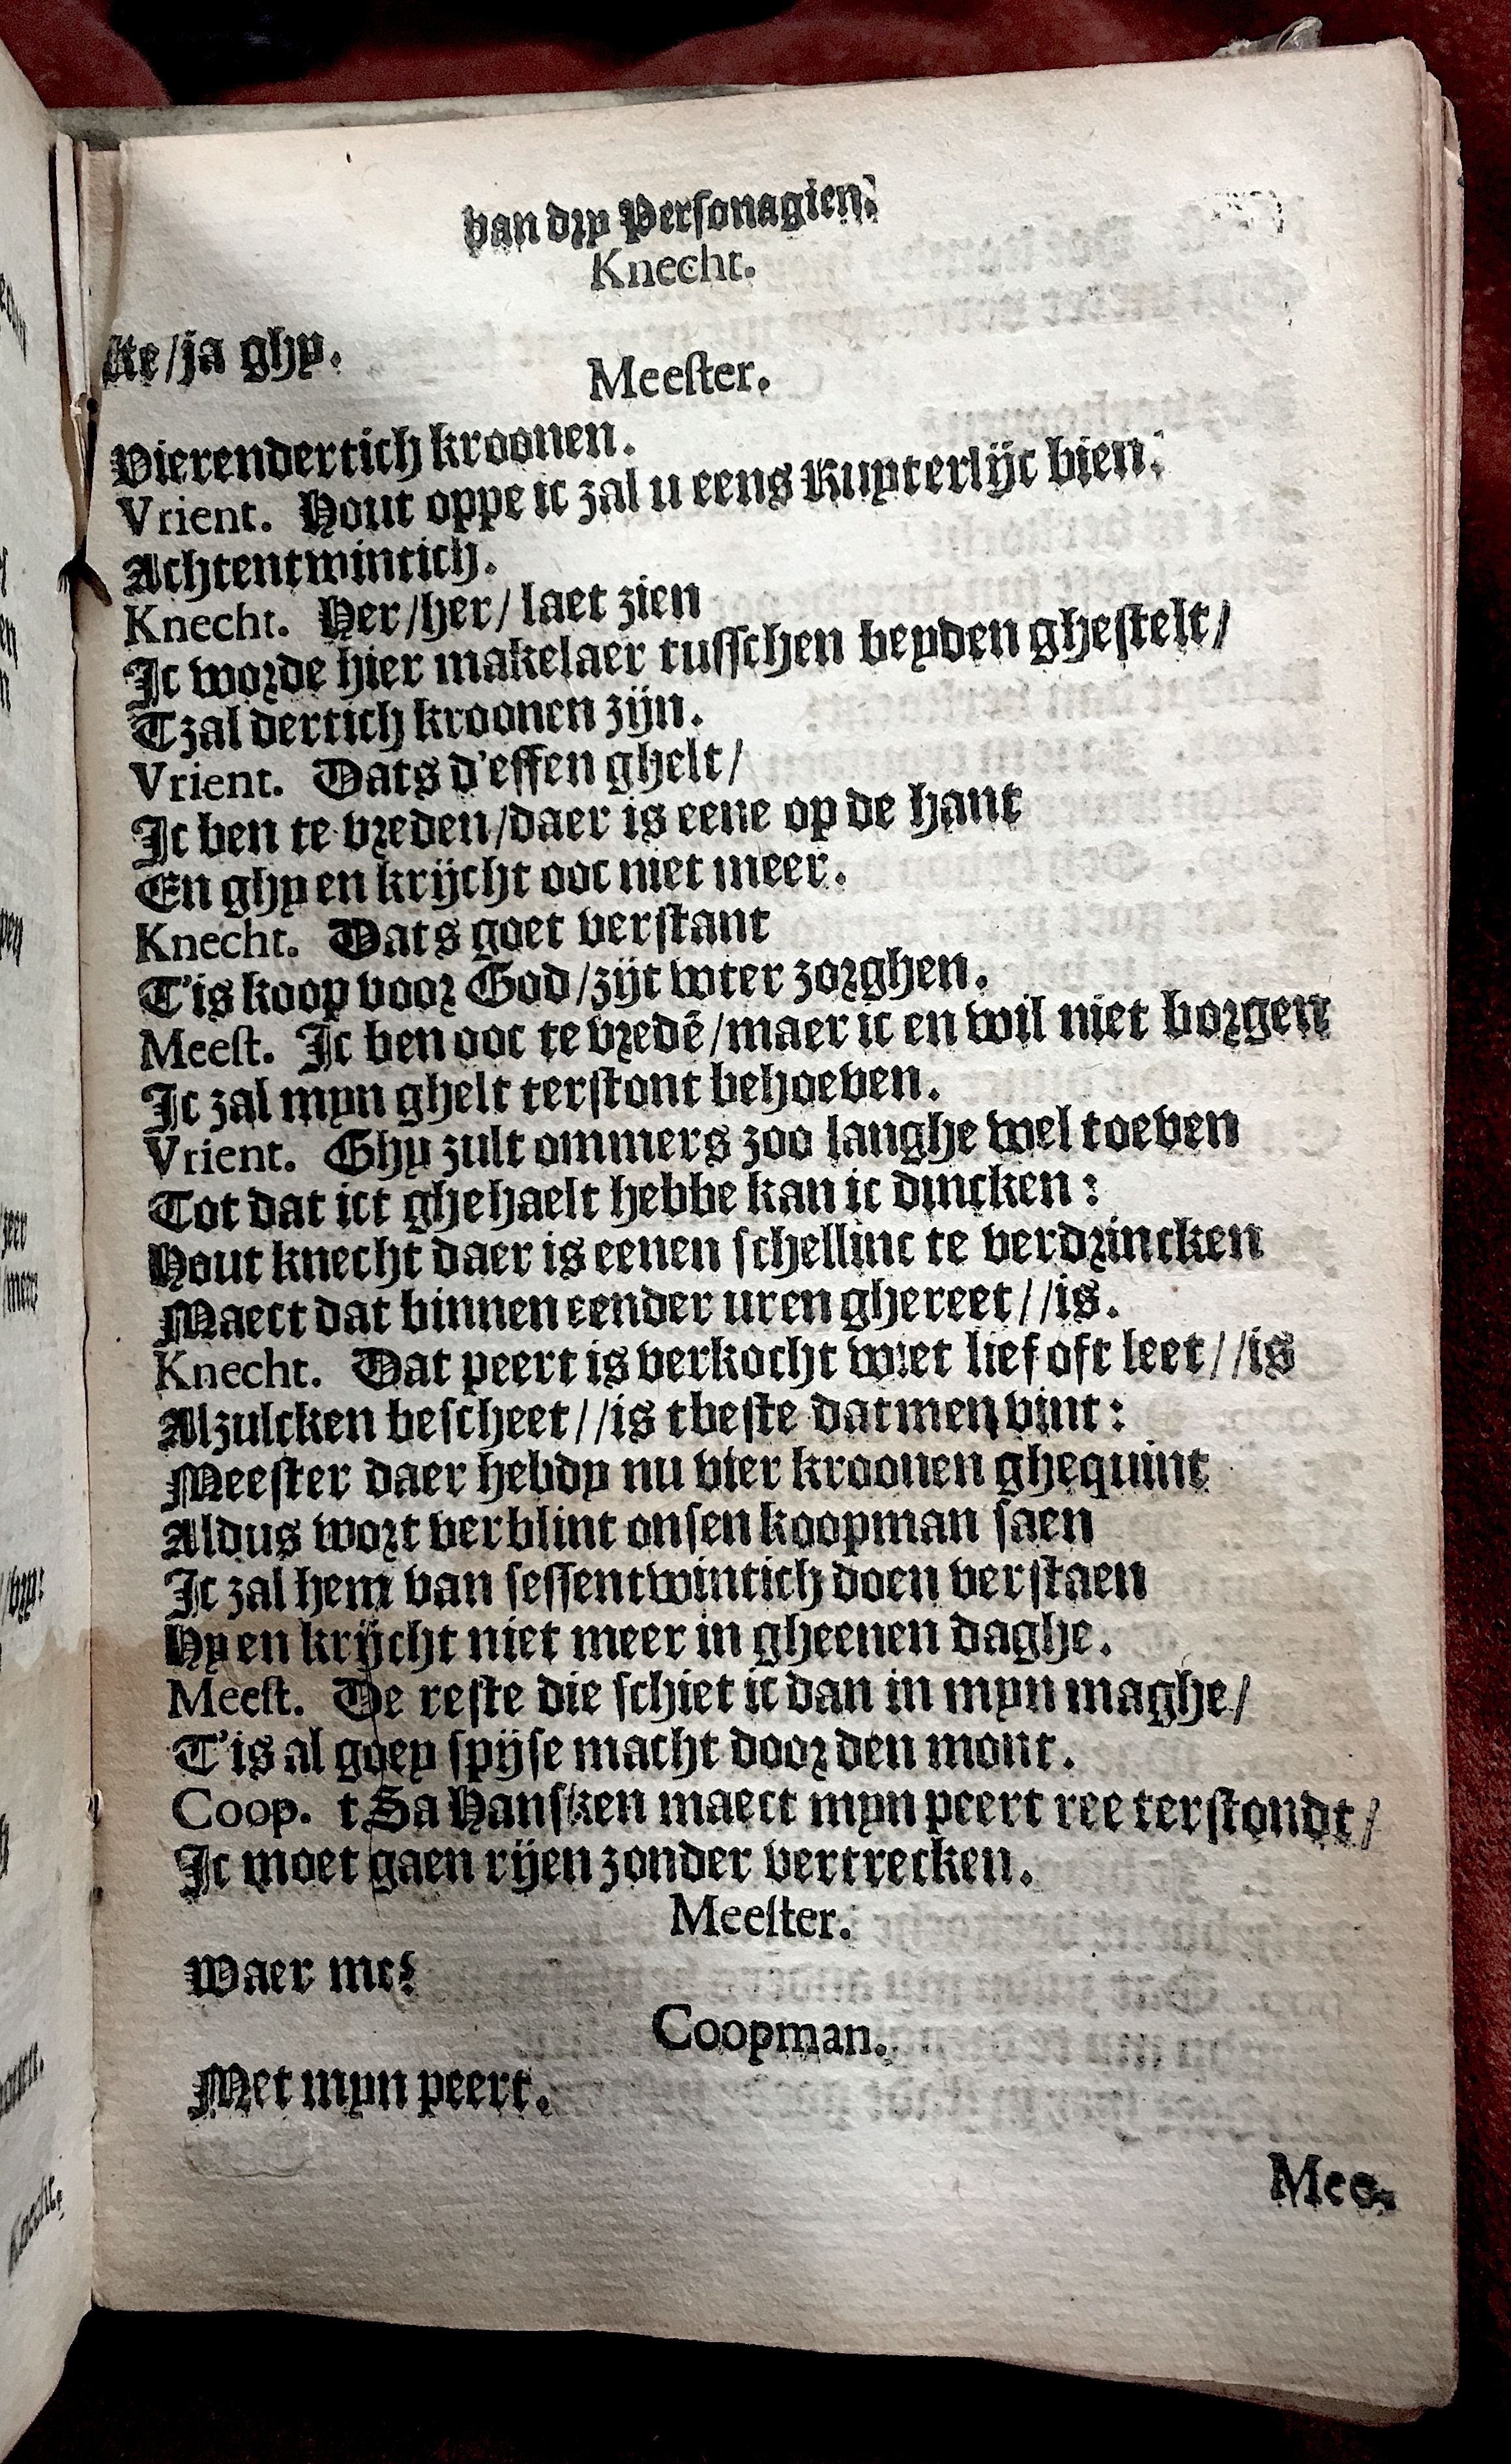 van dry Personagien.
Knecht.
/ja ghy.
Meester.
Vierendertich kroonen.
Vrient. Hout oppe ic zal u eens Ruyterlijc bien.
Achtentwintich.
Knecht. Her/her/ laet zien
Ic worde hier makelaer tusschen beyden ghestelt/
Tzal dertich kroonen zijn.
Vrient. Dats d'effen ghelt/
Ic ben te vreden/daer is eene op de hant
En ghy en krijcht ooc niet meer.
Knecht. Dats goet verstant
T'is koop voor God/zijt wter zorghen.
Meest. Ic ben ooc te vredē/maer ic en wil niet borgen
Ic zal myn ghelt terstont behoeven.
Vrient. Ghy zult ommers zoo langhe wel toeven
Tot dat ict ghehaelt hebbe kan ic dincken:
Hout knecht daer is eenen schellinc te verdrincken
Maect dat binnen eender uren ghereet//is.
Knecht. Dat peert is verkocht wiet lief oft leet//is
Alzulcken bescheet//is tbeste datmen vint:
Meester daer hebdy nu vier kroonen ghequint
Aldus wort verblint onsen koopman saen
Ic zal hem van sessentwintich doen verstaen
Hy en krijcht niet meer in gheenen daghe.
Meest. De reste die schiet ic dan in myn maghe/
T'is al goey spijse macht door den mont.
Coop. t'Sa Hansken maect myn peert ree terstondt/
Ic moet gaen rijen zonder vertrecken.
Meester.
Waer me?
Coopman.
Met myn peert.
Mee.